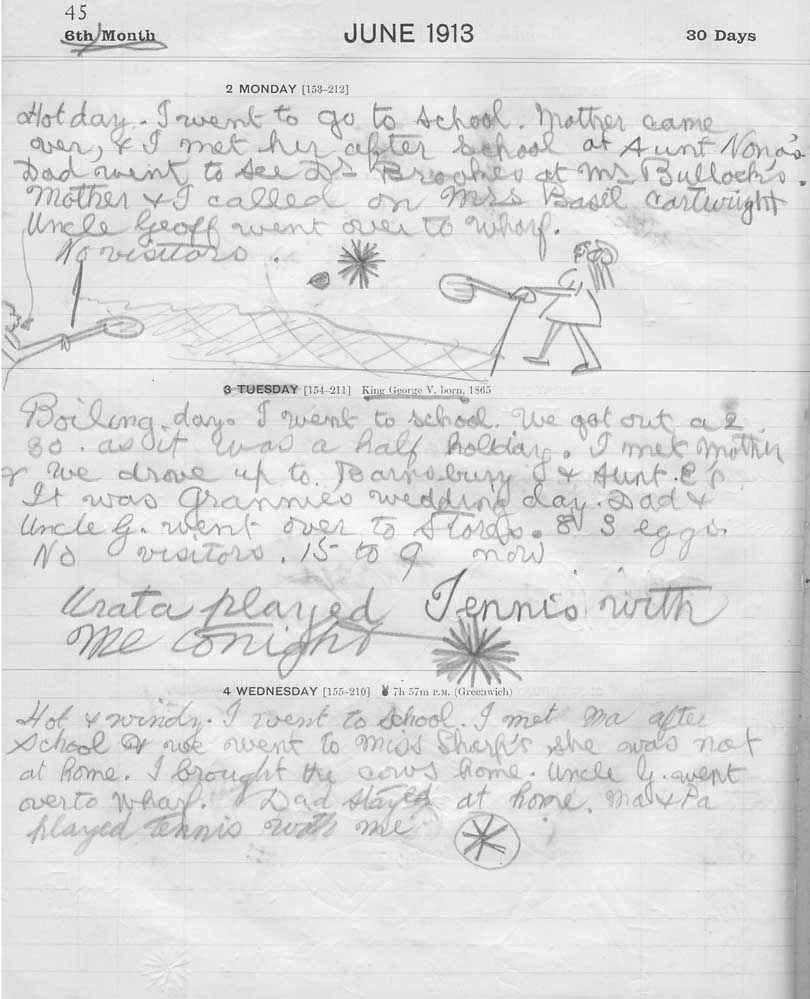 45
6th Month JUNE 1913 30 Days
2 MONDAY [153-212]
Hot day. I went to go to school. Mother came
over, & I met her after school at Aunt Nona's
Dad went to see Dr Brookes at Mr Bullock's.
Mother & I called on Mrs Basil Cartwright
Uncle Geoff went over to wharf.
No visitors.
3 TUESDAY [154-211] King George V. born, 1865
Boiling day. I went to school. We got out a 2.
30. as it was a half holiday. I met Mother
& we drove up to Barnsbury & Aunt. E's.
It was Grannies wedding day. Dad &
Uncle G. went over to Stores. 8 3 eggs.
No visitors. 15 to 9 now
Urata played Tennis with
me tonight
4 WEDNESDAY [155-210] 7h 57m P.M. (Greenwich)
Hot & windy. I went to school. I met Ma after
school & we went to Miss Sharp's she was not
at home. I brought the cows home. Uncle G. went
over to wharf. Dad stayed at home. Ma & Pa
played tennis with me